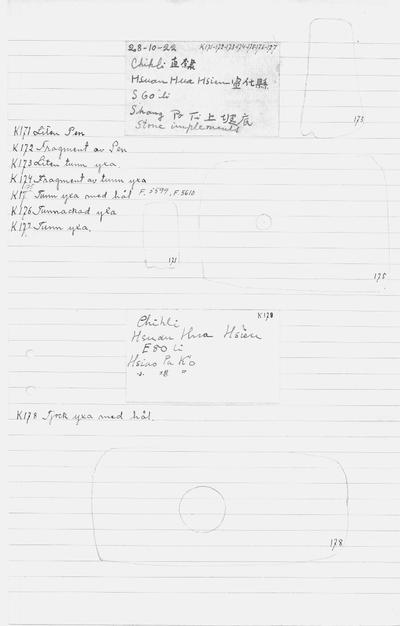 28-10-22 K171-172-173-174-175-176-177
Chihli 直隸
Hsuan Hua Hsien 宣化縣
S 60 li
Shang Po Ti 上堤底
Stone implements
173
K171 Liten Pen
K172 Fragment av Pen
K173 Liten tunn yxa.
K174 Fragment av tunn yxa
K175 Tunn yxa med hål F. 5599, F. 5610
K176 Tunnackad yxa
K177 Tunn yxa.
171
175
K178
Chihli
Hsuan Hua Hsien
E 80 li
Hsiao Pa K'o
K178 Tjock yxa med hål.
178